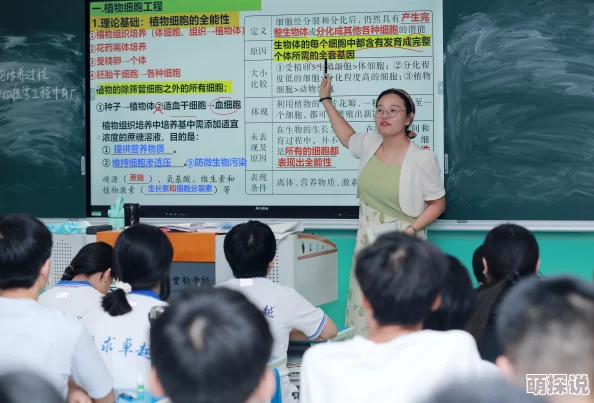 一.植物细胞工程
1.理论基础：植物细胞的全能性
①植物组织培养（体细胞、组织→植物体）
②花药离体培养
③受精卵→个体
④胚胎干细胞→各种细胞
植物的除筛管细胞之外的所有细胞；
①种子→植物体②造血干细胞→血细胞
植物组织培养中培养基中需添加适宜
浓度的蔗糖溶液，目的是：
①提供营养物质
②维持细胞渗透压 ③防微生物污染
碳源（蔗糖）、氨基酸、维生素和
植物激素（生长素和细胞分裂素）等
定义
细胞经分裂和分化后，仍然具有产生完
整生物体或分化成其他各种细胞的潜能
原因
生物体的每个细胞中都含有发育成完整
个体所需的全套基因
大小
比较
①受精卵>生殖细胞>体细胞；②分化程
度低的细胞>分化程度高的细胞；③植物
细胞>动物细胞
体现
利用植物的
花瓣，
至一个
细胞，都可
未表
现及
原因
在生物的生长
间和
育过程中，并不
是所有的细胞都
表现出全能性
表现
条件
离体、营养物质、激素
AMDOX
求卓越
萌探说